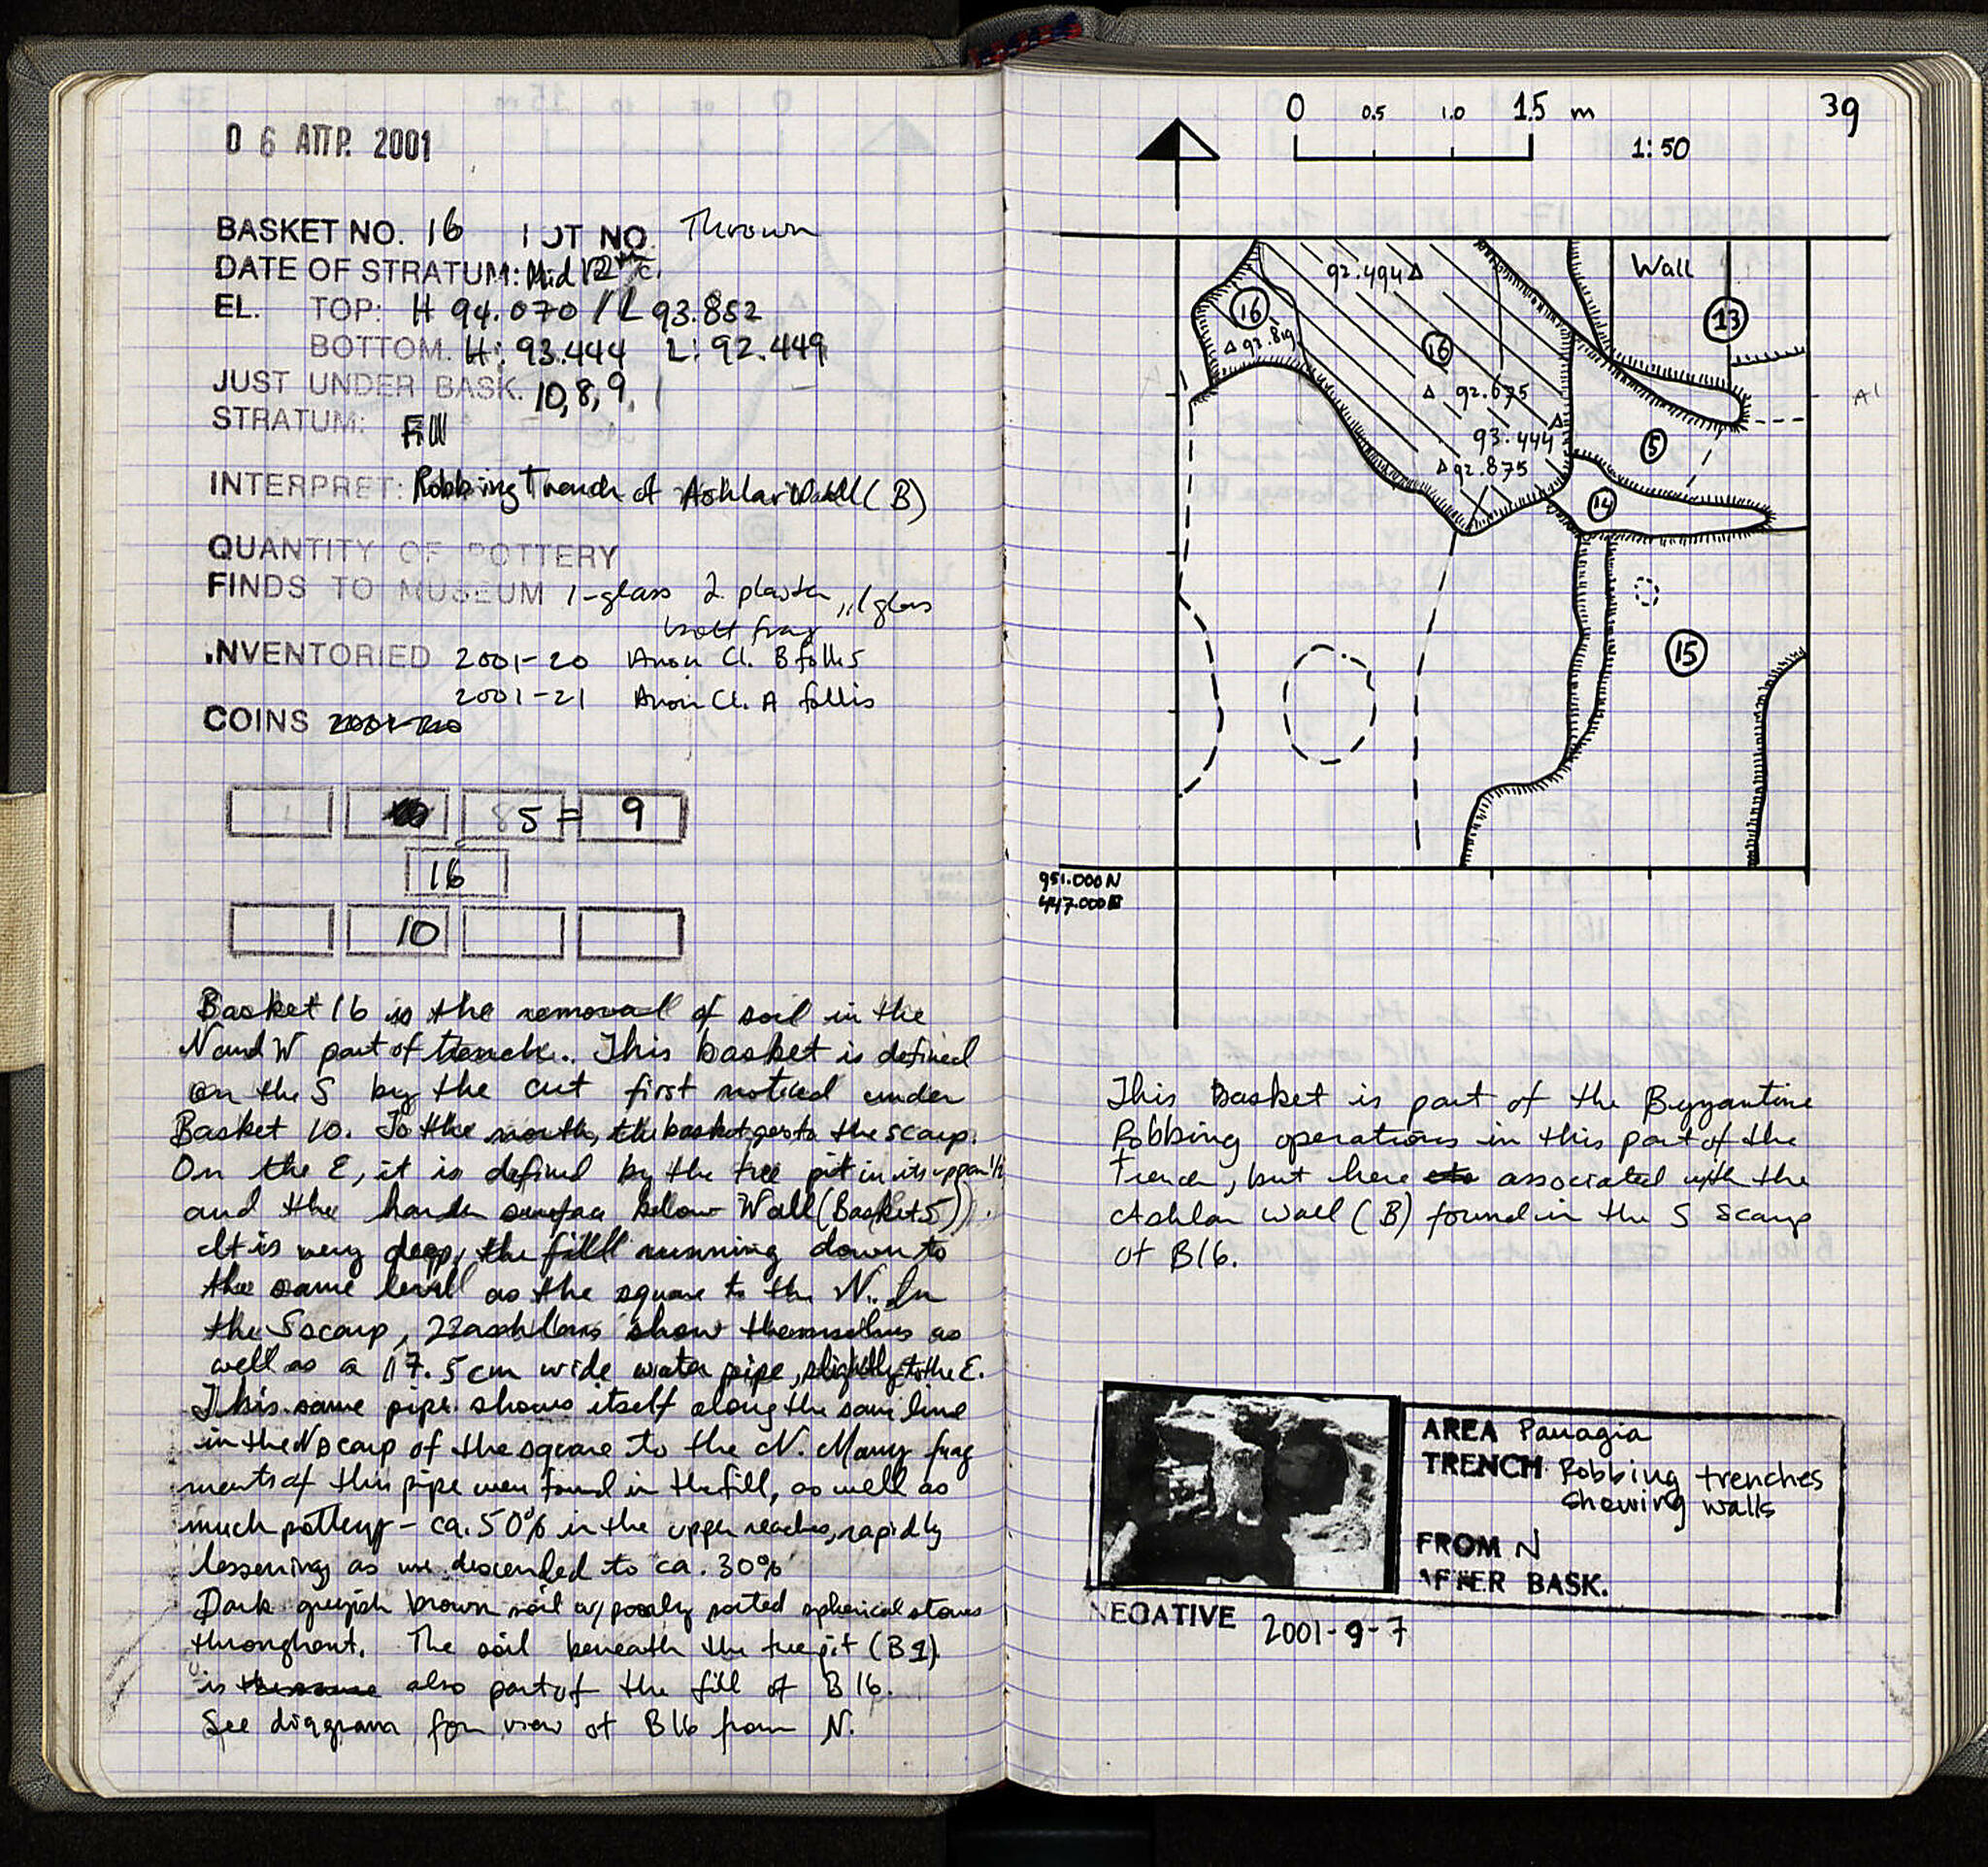 0 6 ΑΠΡ. 2001
BASKET NO. 16 LOT NO. Thrown
DATE OF STRATUM: Mid 12th c.
EL. TOP: H 94.070 / L 93.852
BOTTOM. H: 93.444 L: 92.449
JUST UNDER BASK. 10, 8, 9,
STRATUM: Fill
INTERPRET: Robbing Trench of Ashlar Wall (B)
QUANTITY OF POTTERY
FINDS TO MUSEUM 1-glass 2 plaster, 1 glass
frag
INVENTORIED 2001-20 Anon Cl. B follis
2001-21 Anon Cl. A follis
COINS
5 = 9
16
10
Basket 16 is the removal of soil in the
N and W part of trench. This basket is defined
on the S by the cut first noticed under
Basket 10. To the north, the basket goes to the scarp.
On the E, it is defined by the tree pit in its upper 1/2
and the harder surface below Wall (Basket 5)).
It is very deep, the fill running down to
the same level as the square to the N. In
the S scarp, 2 ashlars show themselves as
well as a 17.5 cm wide water pipe, slightly to the E.
This same pipe shows itself along the same line
in the N scarp of the square to the N. Many frag
ments of this pipe were found in the fill, as well as
much pottery - ca. 50% in the upper reaches, rapidly
lessening as we descended to ca. 30%
Dark greyish brown soil w/ poorly sorted spherical stones
throughout. The soil beneath the tree pit (B9)
is also part of the fill of B16.
See diagram for view of B16 from N.
39
0 0.5 1.0 1.5 m
1:50
92.494
Wall
16
13
92.819
16
92.675
93.444
5
92.875
14
15
951.000 N
447.000 E
This basket is part of the Byzantine
Robbing operations in this part of the
trench, but here associated with the
Ashlar wall (B) found in the S scarp
of B16.
AREA Panagia
TRENCH Robbing trenches
showing walls
FROM N
AFTER BASK.
NEGATIVE 2001-9-7